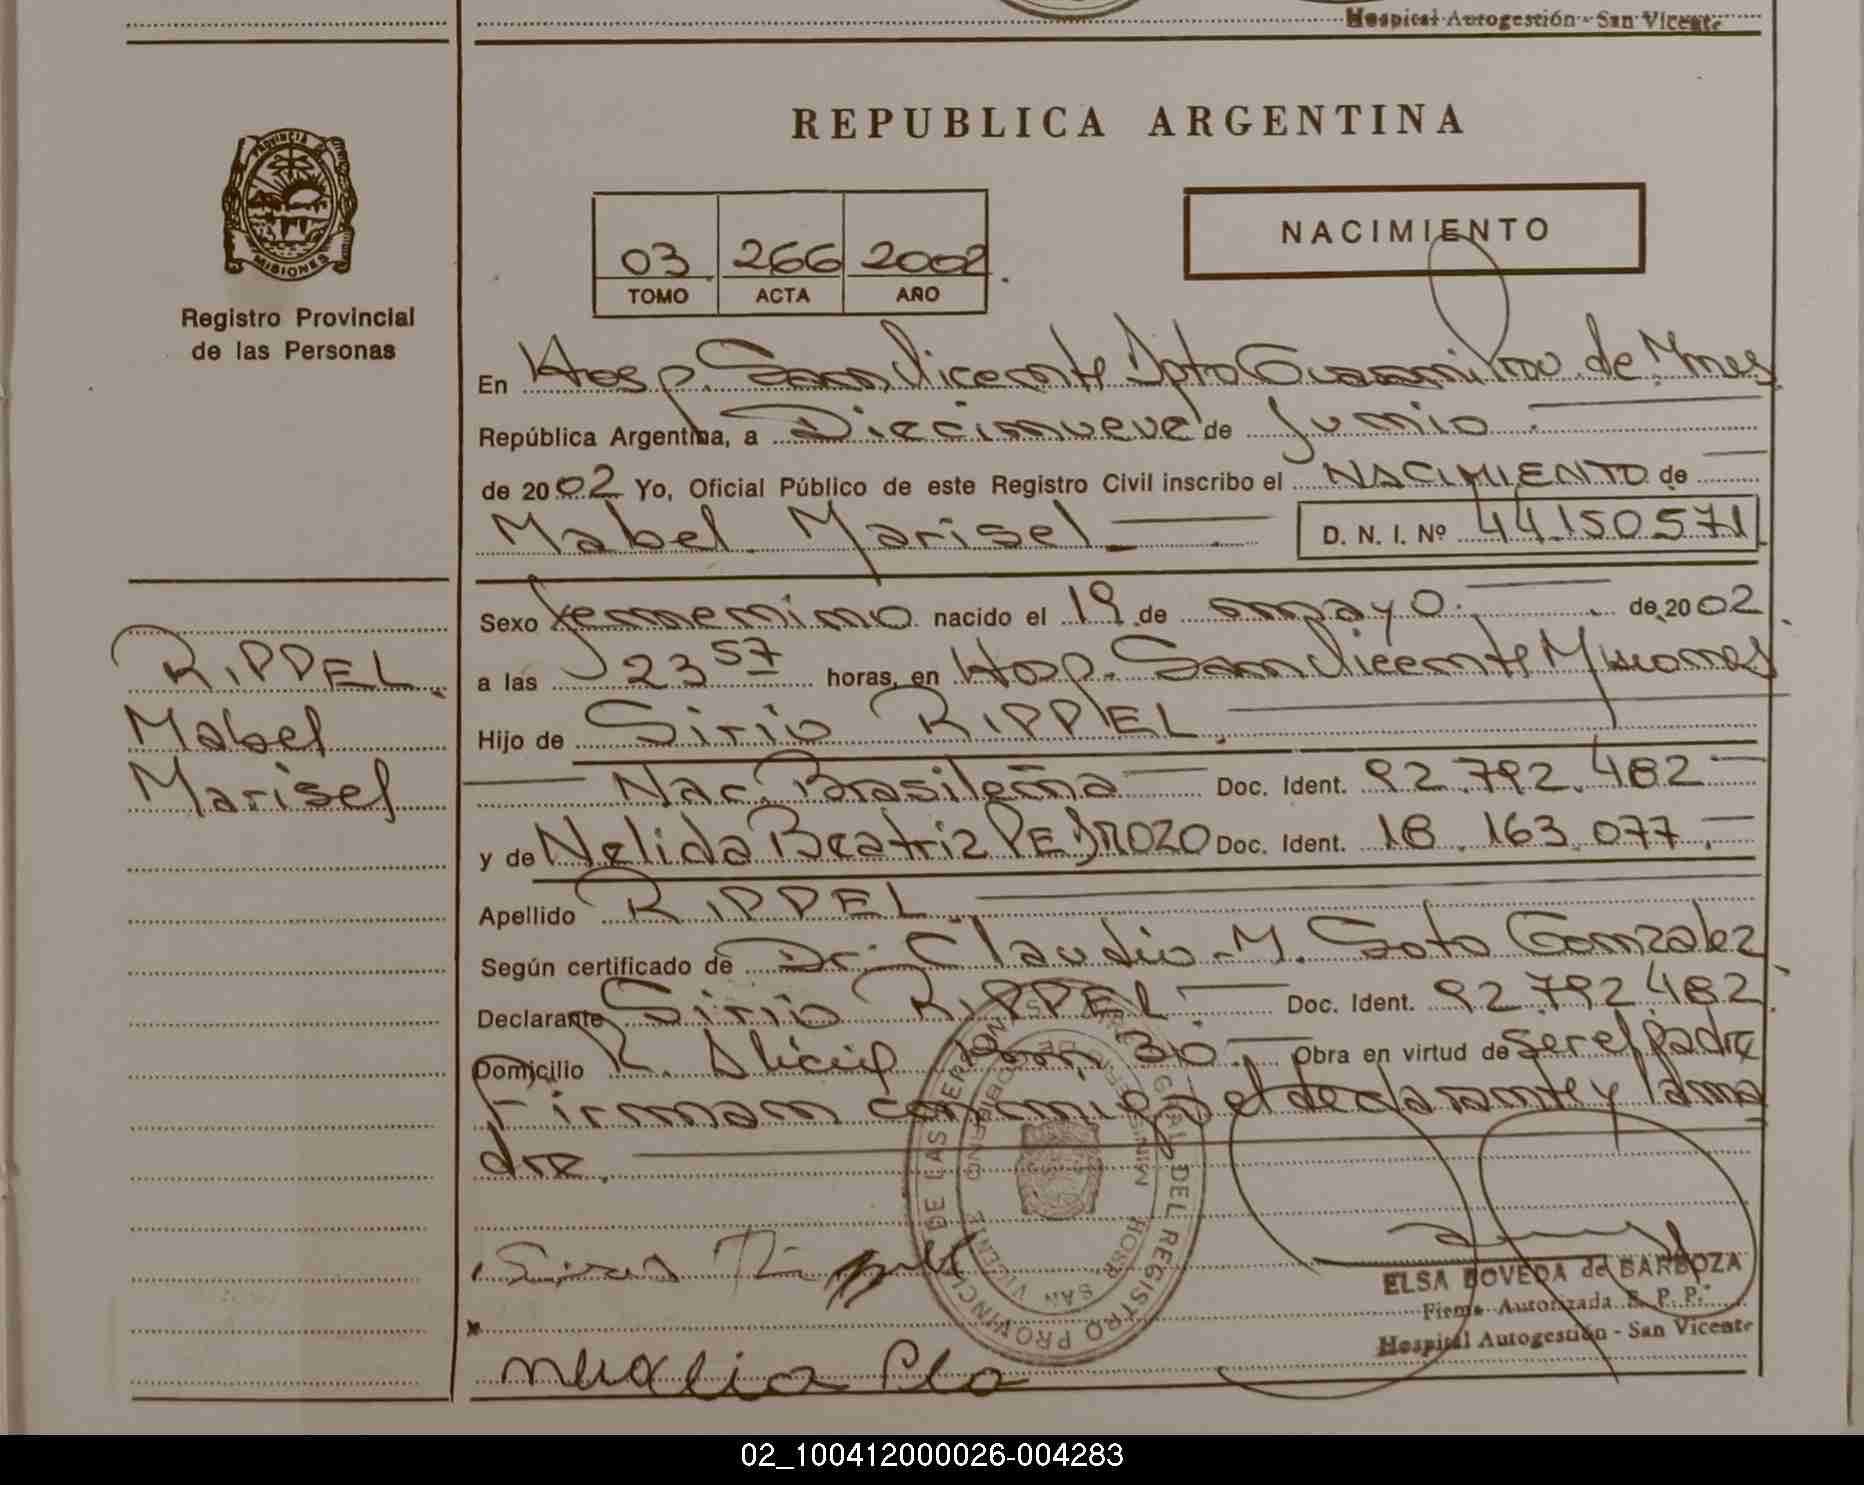 Hospital Autogestión - San Vicente
REPUBLICA ARGENTINA
PROVINCIA DE
MISIONES
Registro Provincial
de las Personas
03 266 2002
TOMO ACTA AÑO
NACIMIENTO
En Hosp. San Vicente Dpto Guarani Prov. de Mnes
República Argentina, a Diecinueve de Junio
de 2002 Yo, Oficial Público de este Registro Civil inscribo el NACIMIENTO de
Mabel Marisel D. N. I. Nº 44.150571
Sexo femenino nacido el 19 de mayo de 2002
RIPPEL
Mabel
Marisel
a las 23 57 horas, en Hosp. San Vicente Misiones
Hijo de Sirio RIPPEL
Nac. Brasileña Doc. Ident. 92.792.482
y de Nelida Beatriz PEDROZO Doc. Ident. 18.163.077
Apellido RIPPEL
Según certificado de Dr. Claudio M. Soto Gonzalez
Declarante Sirio RIPPEL Doc. Ident. 92.792.482
Domicilio Km 30 Obra en virtud de ser el padre
Firman conmigo el declarante y la ma
dre.
REGISTRO PROVINCIAL DE LAS PERSONAS
HOSP. SAN VICENTE
ELSA BOVEDA de BARBOZA
Firma Autorizada R. P. P.
Hospital Autogestión - San Vicente
02_100412000026-004283